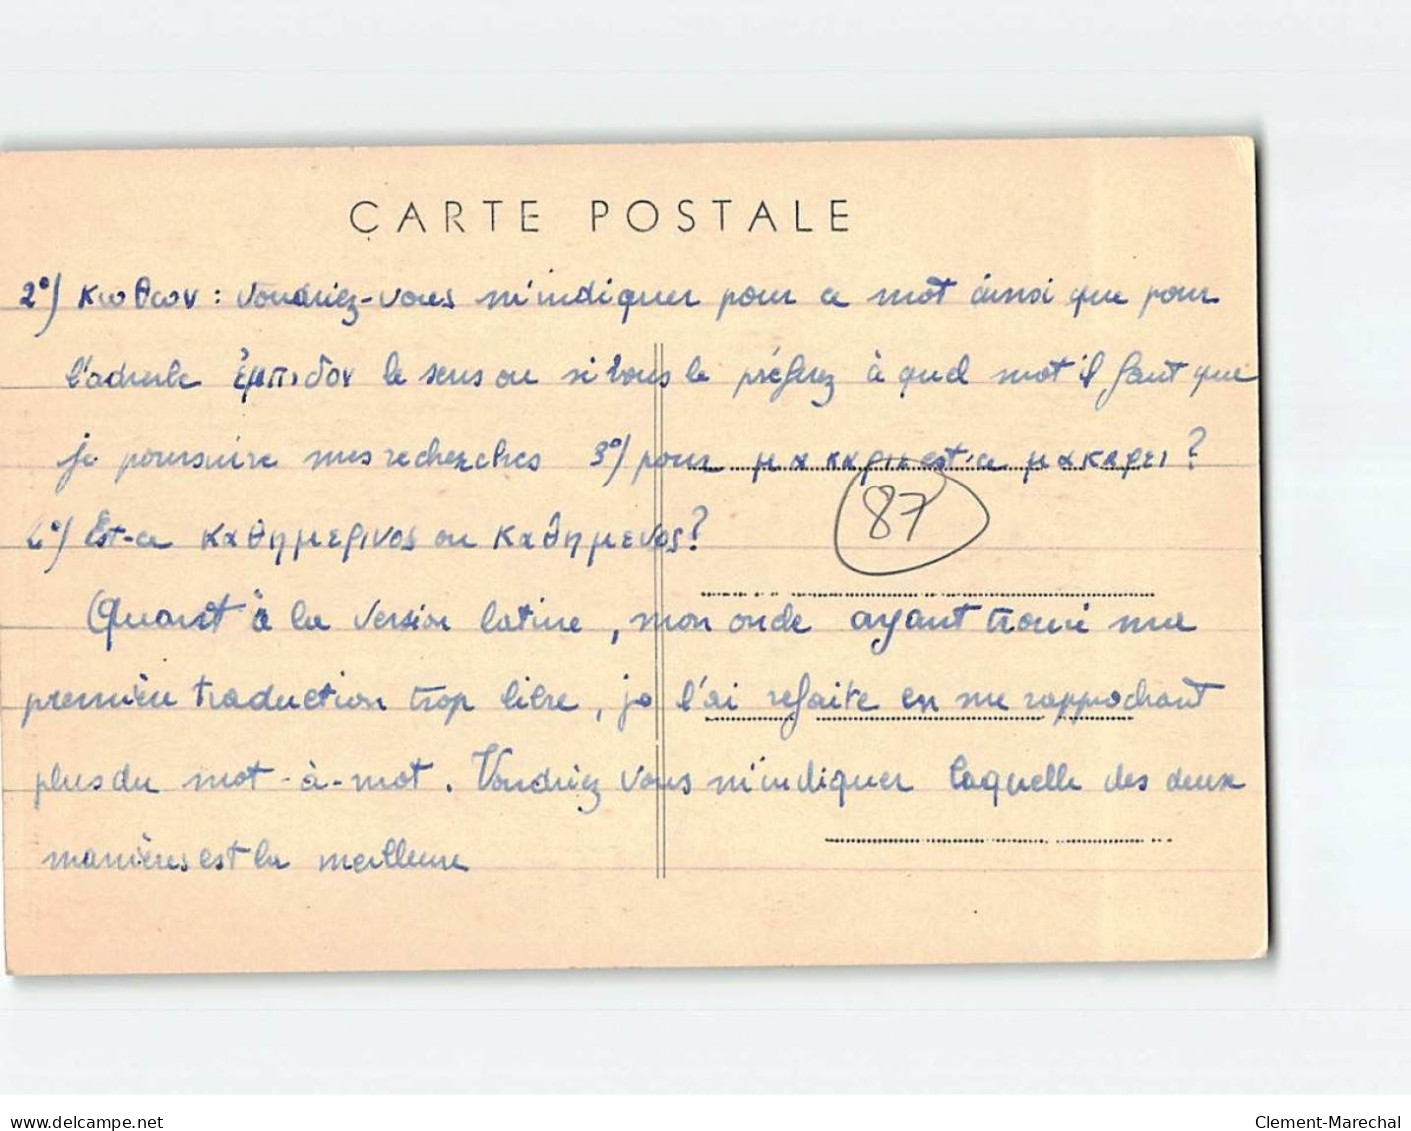 CARTE POSTALE
2°) κωθων : Voudriez-vous m'indiquer pour ce mot ainsi que pour
l'adverbe ἐμπιδον le sens ou si vous le préférez à quel mot il faut que
je poursuive mes recherches 3°) pour μακαρι est-ce μακαρει ?
4°) Est-ce καθημερινος ou καθημενος ?
Quant à la version latine, mon oncle ayant trouvé ma
première traduction trop libre, je l'ai refaite en me rapprochant
plus du mot-à-mot. Voudriez vous m'indiquer laquelle des deux
manières est la meilleure
87
delcampe.net
Clement-Marechal